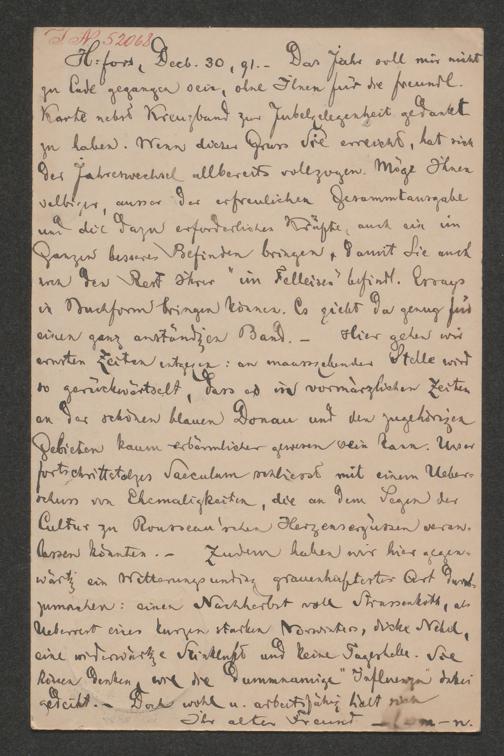 I N 52068
H:fors, Decb. 30, 91. – Das Jahr soll mir nicht
zu Ende gegangen sein, ohne Ihnen für die freundl.
Karte nebst Kreuzband zur Jubelgelegenheit gedankt
zu haben. Wenn dieser Gruss Sie erreicht, hat sich
der Jahreswechsel allbereits vollzogen. Möge Ihnen
selbiger, ausser der erfreulichen Gesammtausgabe
und die dazu erforderlichen Kräfte, auch ein im
Ganzen besseres Befinden bringen, damit Sie auch
noch den Rest Ihrer "im Felleisen" befindl. Essays
in Buchform bringen können. Es giebt da genug für
einen ganz anständigen Band. – Hier gehen wir
ernsten Zeiten entgegen: an maassgebender Stelle wird
so gerückwärtselt, dass es in vormärzlichen Zeiten
an der schönen blauen Donau und den zugehörigen
Gebieten kaum erbärmlicher gewesen sein kann. Unser
fortschrittstolzes Saeculum schliesst mit einem Ueber-
schuss von Ehemaligkeiten, die an dem Segen der
Cultur zu Rousseau'schen Herzensergüssen veran-
lassen könnten. – Zudem haben wir hier gegen-
wärtig ein Witterungsunding grauenhaftester Art durch-
zumachen: einen Nachherbst voll Strassenkoth, als
Ueberrest eines kurzen starken Vorwinters, dicke Nebel,
eine widerwärtige Stinkluft und keine Tageshelle. Sie
können denken, wie die "Dummnamige" "Influenza" dabei
gedeiht. – Doch wohl u. arbeitsfähig hält sich
Ihr alter Freund